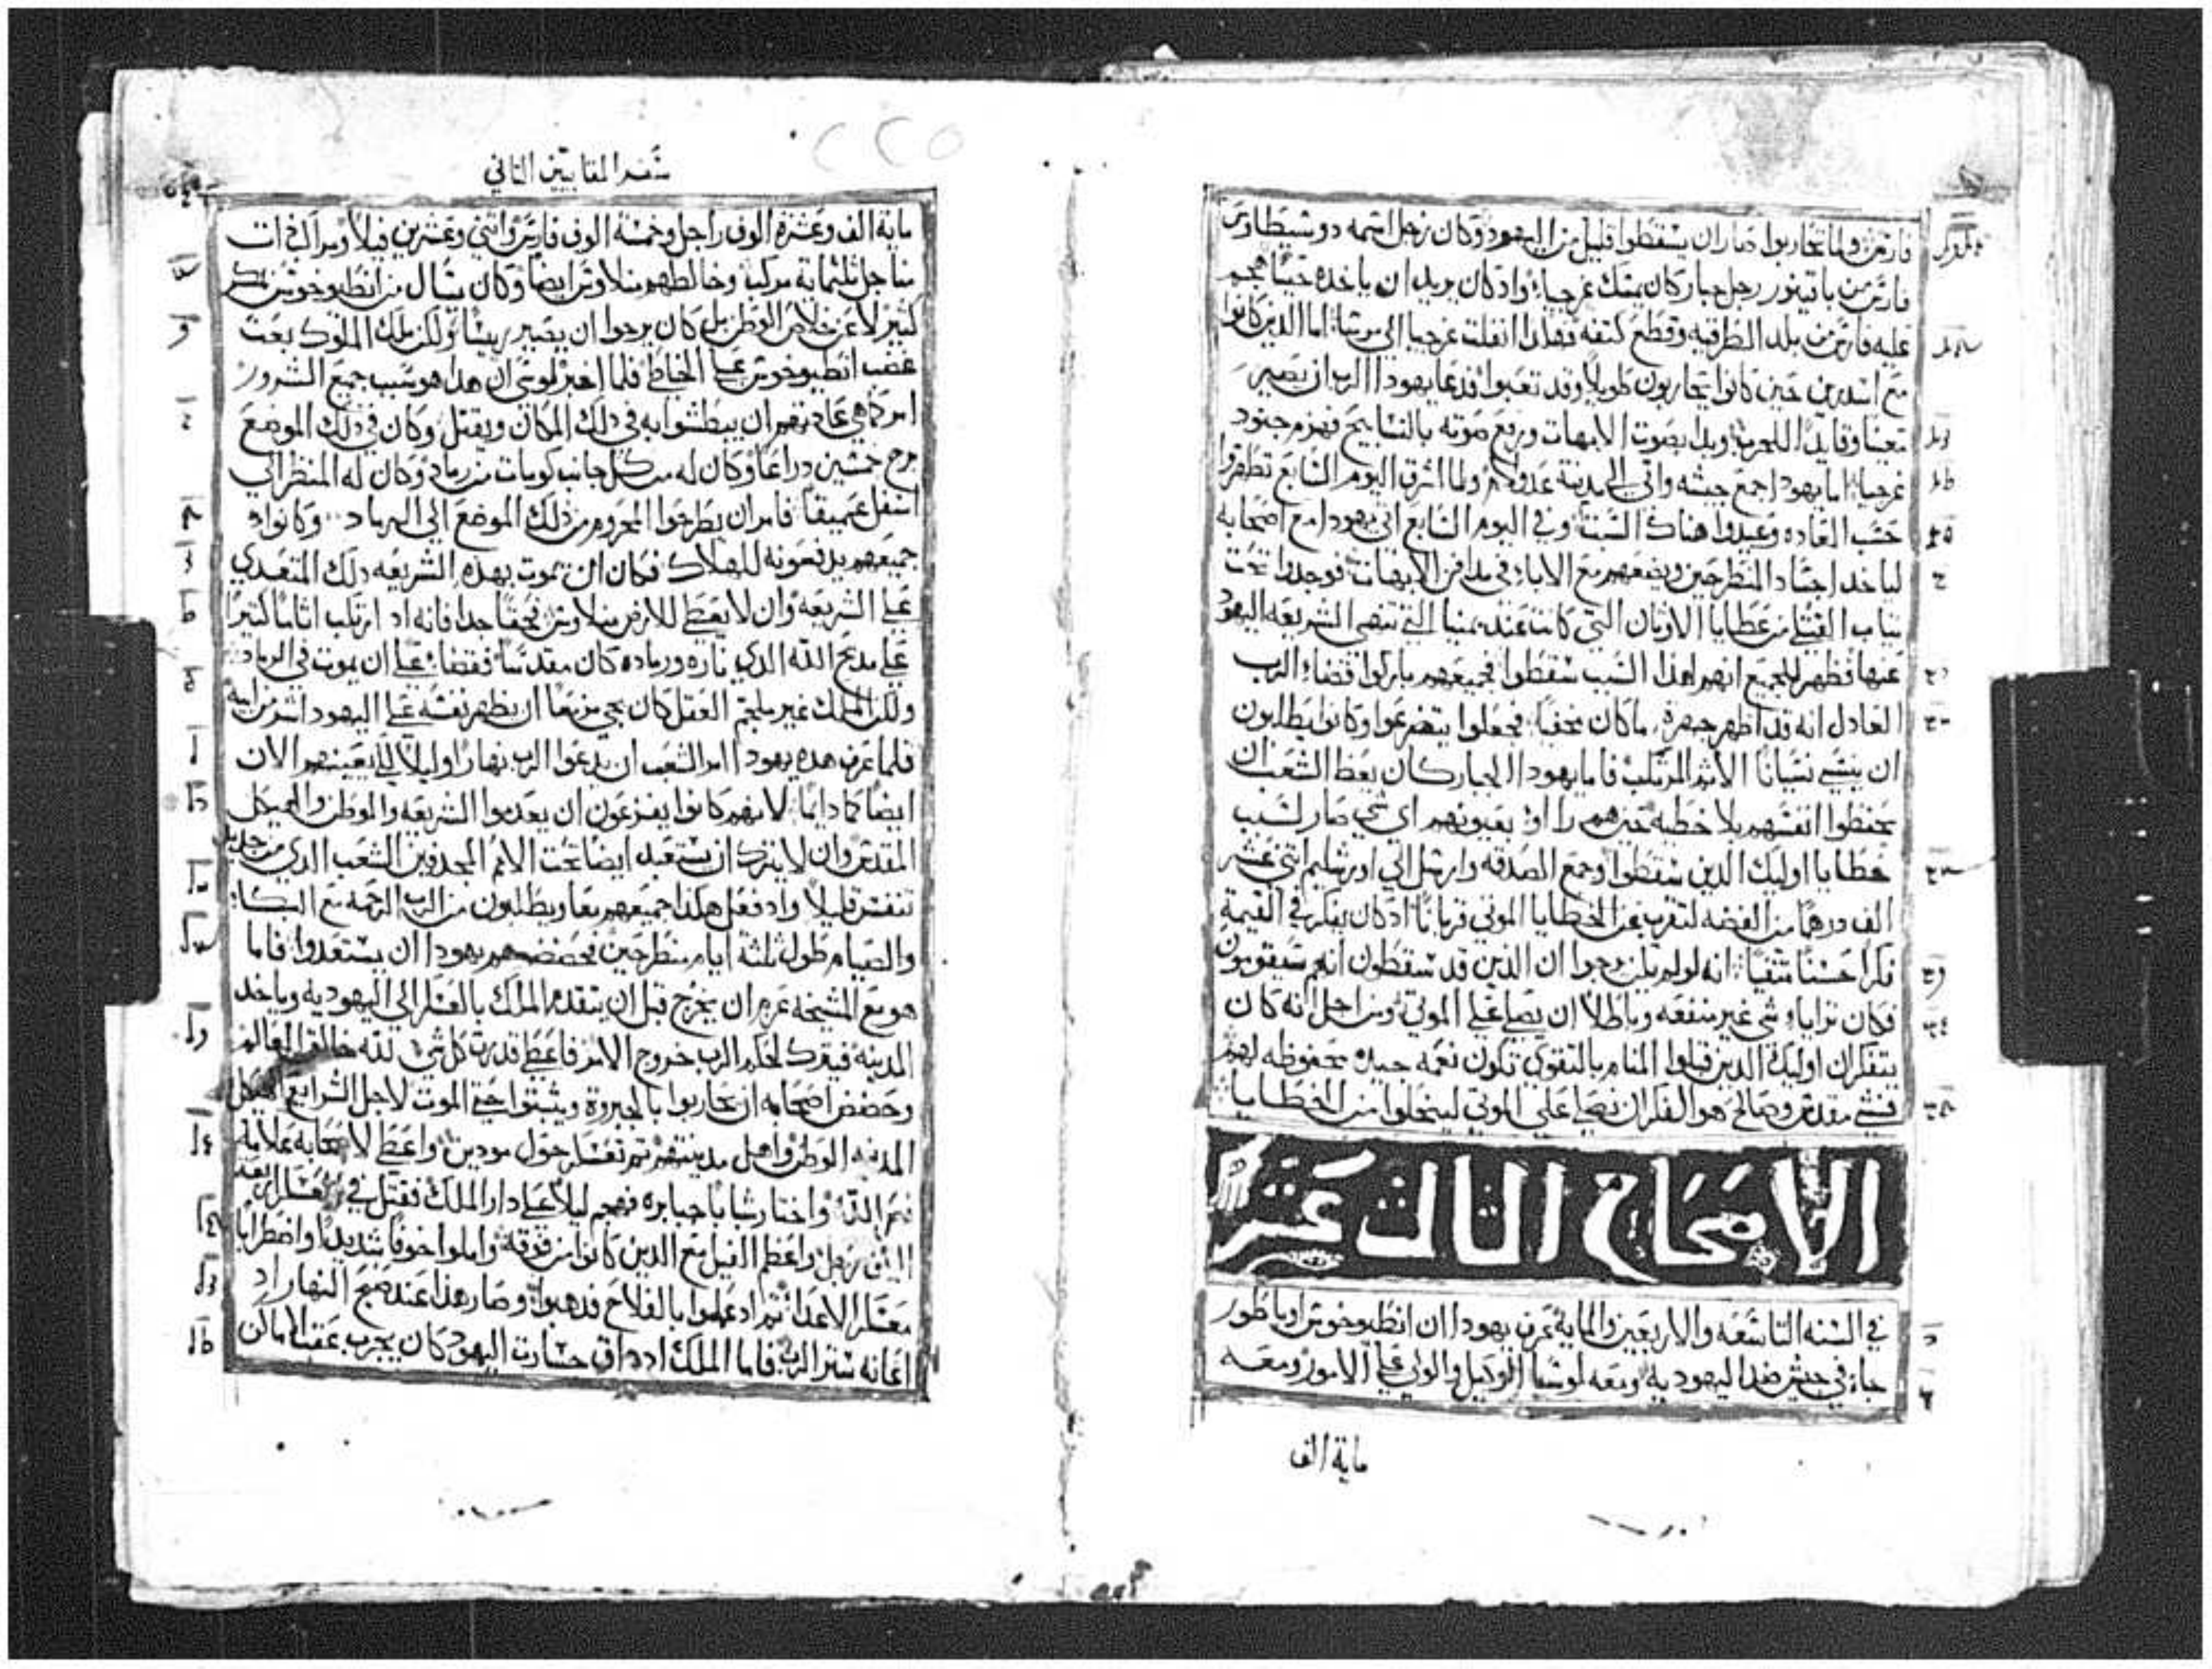 فارس ولما تحاربوا صار ان يسقطوا قليل من اليهود وكان رجل اسمه دوسيطاوس
فارس من باقينور رجل جبار كان يمسك غرجيا واد كان يريد ان ياخده حيا هجم
عليه فارس من بلد الطراقيه وقطع كتفه فهادا انفلت غرجيا الي مرسا اما الدين كانوا
مع اسدرين حين كانوا يتحاربون طويلا وقد تعبوا فدعا يهودا الرب ان يصير
معينا وقايدا للحرب وبدا بصوت الابهات ورفع صوته بالتسابيح فهزم جنود
غرجيا اما يهودا جمع جيشه واتي الي مدينة عدولام ولما اشرق اليوم السابع تطهروا
حسب العاده وعيدوا هناك السبت وفي اليوم التابع اتي يهودا مع اصحابه
لياخد اجساد المنطرحين ويضعهم مع الاباء في مدافن الابهات فوجدوا تحت
تياب القتلي من عطايا الاوتان التي كانت عند يمنيا التي تنهي الشريعه اليهود
عنها فظهر للجميع انهم لهذا السبب سقطوا فجميعهم باركوا قضاء الرب
العادل انه قد اظهر جهرة ما كان مخفيا فجعلوا يتضرعوا وكانوا يطلبون
ان ينسي نسيانا الاثم المرتكب فاما يهودا الجبار كان يعظ الشعب ان
يحفظوا انفسهم بلا خطيه حين هم راوا بعيونهم اي شي صار لسبب
خطايا اوليك الدين سقطوا وجمع الصدقه وارسل الي اورشليم اتني عشر
الف درهما من الفضه لتقرب عن الخطايا الموتي قربانا ادكان يفكر في القيمة
فكرا حسنا متقيا انه لولم يكن يرجوا ان الدين قد سقطوا انهم سيقومون
فكان ترايا شي غير منفعه وباطلا ان يصلي علي الموتي ومن اجل انه كان
يتفكر ان اوليك الدين قبلوا المنام بالتقوي تكون نعمه جيده محفوظه لهم
فشي مقدس وصالح هو الفكر ان نصلي علي الموتي لينحلوا من الخطايا
الاصحاح التالت عشر
في السنه التاسعه والاربعين والمايه عرف يهودا ان انطيوخوس اوباطور
جاء في جيش ضد اليهوديه ومعه لوسيا الوكيل والوالي علي الامور ومعه
ماية الف
سفر المقابيين التاني
ماية الف وعشرة الوف راجل وخمسة الوف فارس واتني وعشرين فيلا ومراكب دات
مناجل تلتماية مركب وخالطهم منلاوس ايضا وكان يسال من انطيوخوس بمكر
كتير لا عن خلاص الوطن بل كان يرجوا ان يصير ريسا ولكن ملك الملوك بعت
غضب انطيوخوس علي الخاطي فلما اخبر لوسي ان هدا هو سبب جميع الشرور
امر كما هي عادتهم ان يبطشوا به في دلك المكان ويقتل وكان في دلك الموضع
برج خمسين دراعا وكان له من كل جانب كومات من رماد وكان له المنظر الي
اسفل عميقا فامر ان يطرحوا المحروم من دلك الموضع الي الرماد وكانواد
جميعهم يدفعونه للهلاك فكان ان يموت بهده الشريعه دلك المتعدي
علي الشريعه وان لا يعطي للارض منلاوس بحقا جدا فانه اد ارتكب اتاما كتيرا
علي مدبح الله الدي ناره ورماده كان مقدسا فقضا علي ان يموت في الرماد
ولكن الملك غير ملجم العقل كان يجي مزمعا ان يظهر نفسه علي اليهود اشر من ابيه
فلما عرف هده يهودا امر الشعب ان يدعوا الرب نهارا وليلا لكي يعينهم الان
ايضا كما دايما لانهم كانوا يفزعون ان يعدموا الشريعه والوطن والهيكل
المقدس وان لا يترك ان يستعبد ايضا تحت الامم المجدفين الشعب الدي من جديد
تنفس قليلا واد فعل هكدا جميعهم معا ويطلبون من الرب الرحمه مع البكا
والصيام طول تلتة ايام منطرحين فحضضهم يهودا ان يستعدوا فاما
هو مع المشيخه عزم ان يخرج قبل ان يتقدم الملك بالعسكر الي اليهوديه وياخد
المدينه فيترك لحكم الرب خروج الامر فاعطا قدرت كل شي لله خالق العالم
وحضض اصحابه ان يحاربوا بالجبروة ويتبتوا حتي الموت لاجل الشرايع الهيكل
المدينه الوطن واهل مدينتهم تم تعسكر حول مودين واعطا لاصحابه علامة
نصر الله واختار شبابا جبابره فهجم ليلا علي دار الملك فقتل في العسكر اربعة
الاف رجل واعظم الفيل مع الدين كانوا من فوقه واملوا خوفا شديدا واضطرابا
معسكر الاعدا تم اد عملوا بالفلاح فدهبوا وصار هدا عند صبح النهار اد
اعانه ستر الرب فاما الملك اد داق جسارت اليهود كان يجرب عقب الاماكن